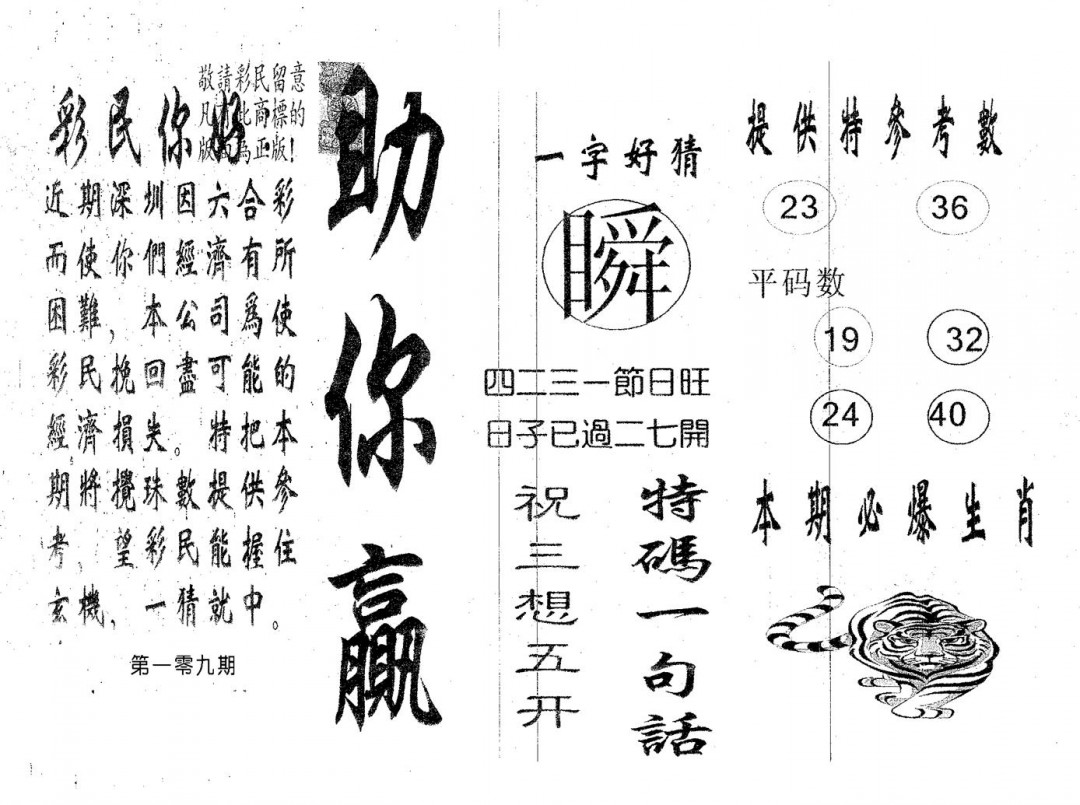 敬請彩民留意
凡 此商標的
版 為正版！
彩民你好
近期深圳因六合彩
而使你們經濟有所
困難，本公司為使
彩民挽回盡可能的
經濟損失。特把本
期將攪珠數提供參
考，望彩民能握住
玄機，一猜就中。
第一零九期
助你贏
一字好猜
瞬
四二三一節日旺
日子已過二七開
特碼一句話
祝三想五开
提供特參考數
23 36
平码数
19 32
24 40
本期必爆生肖